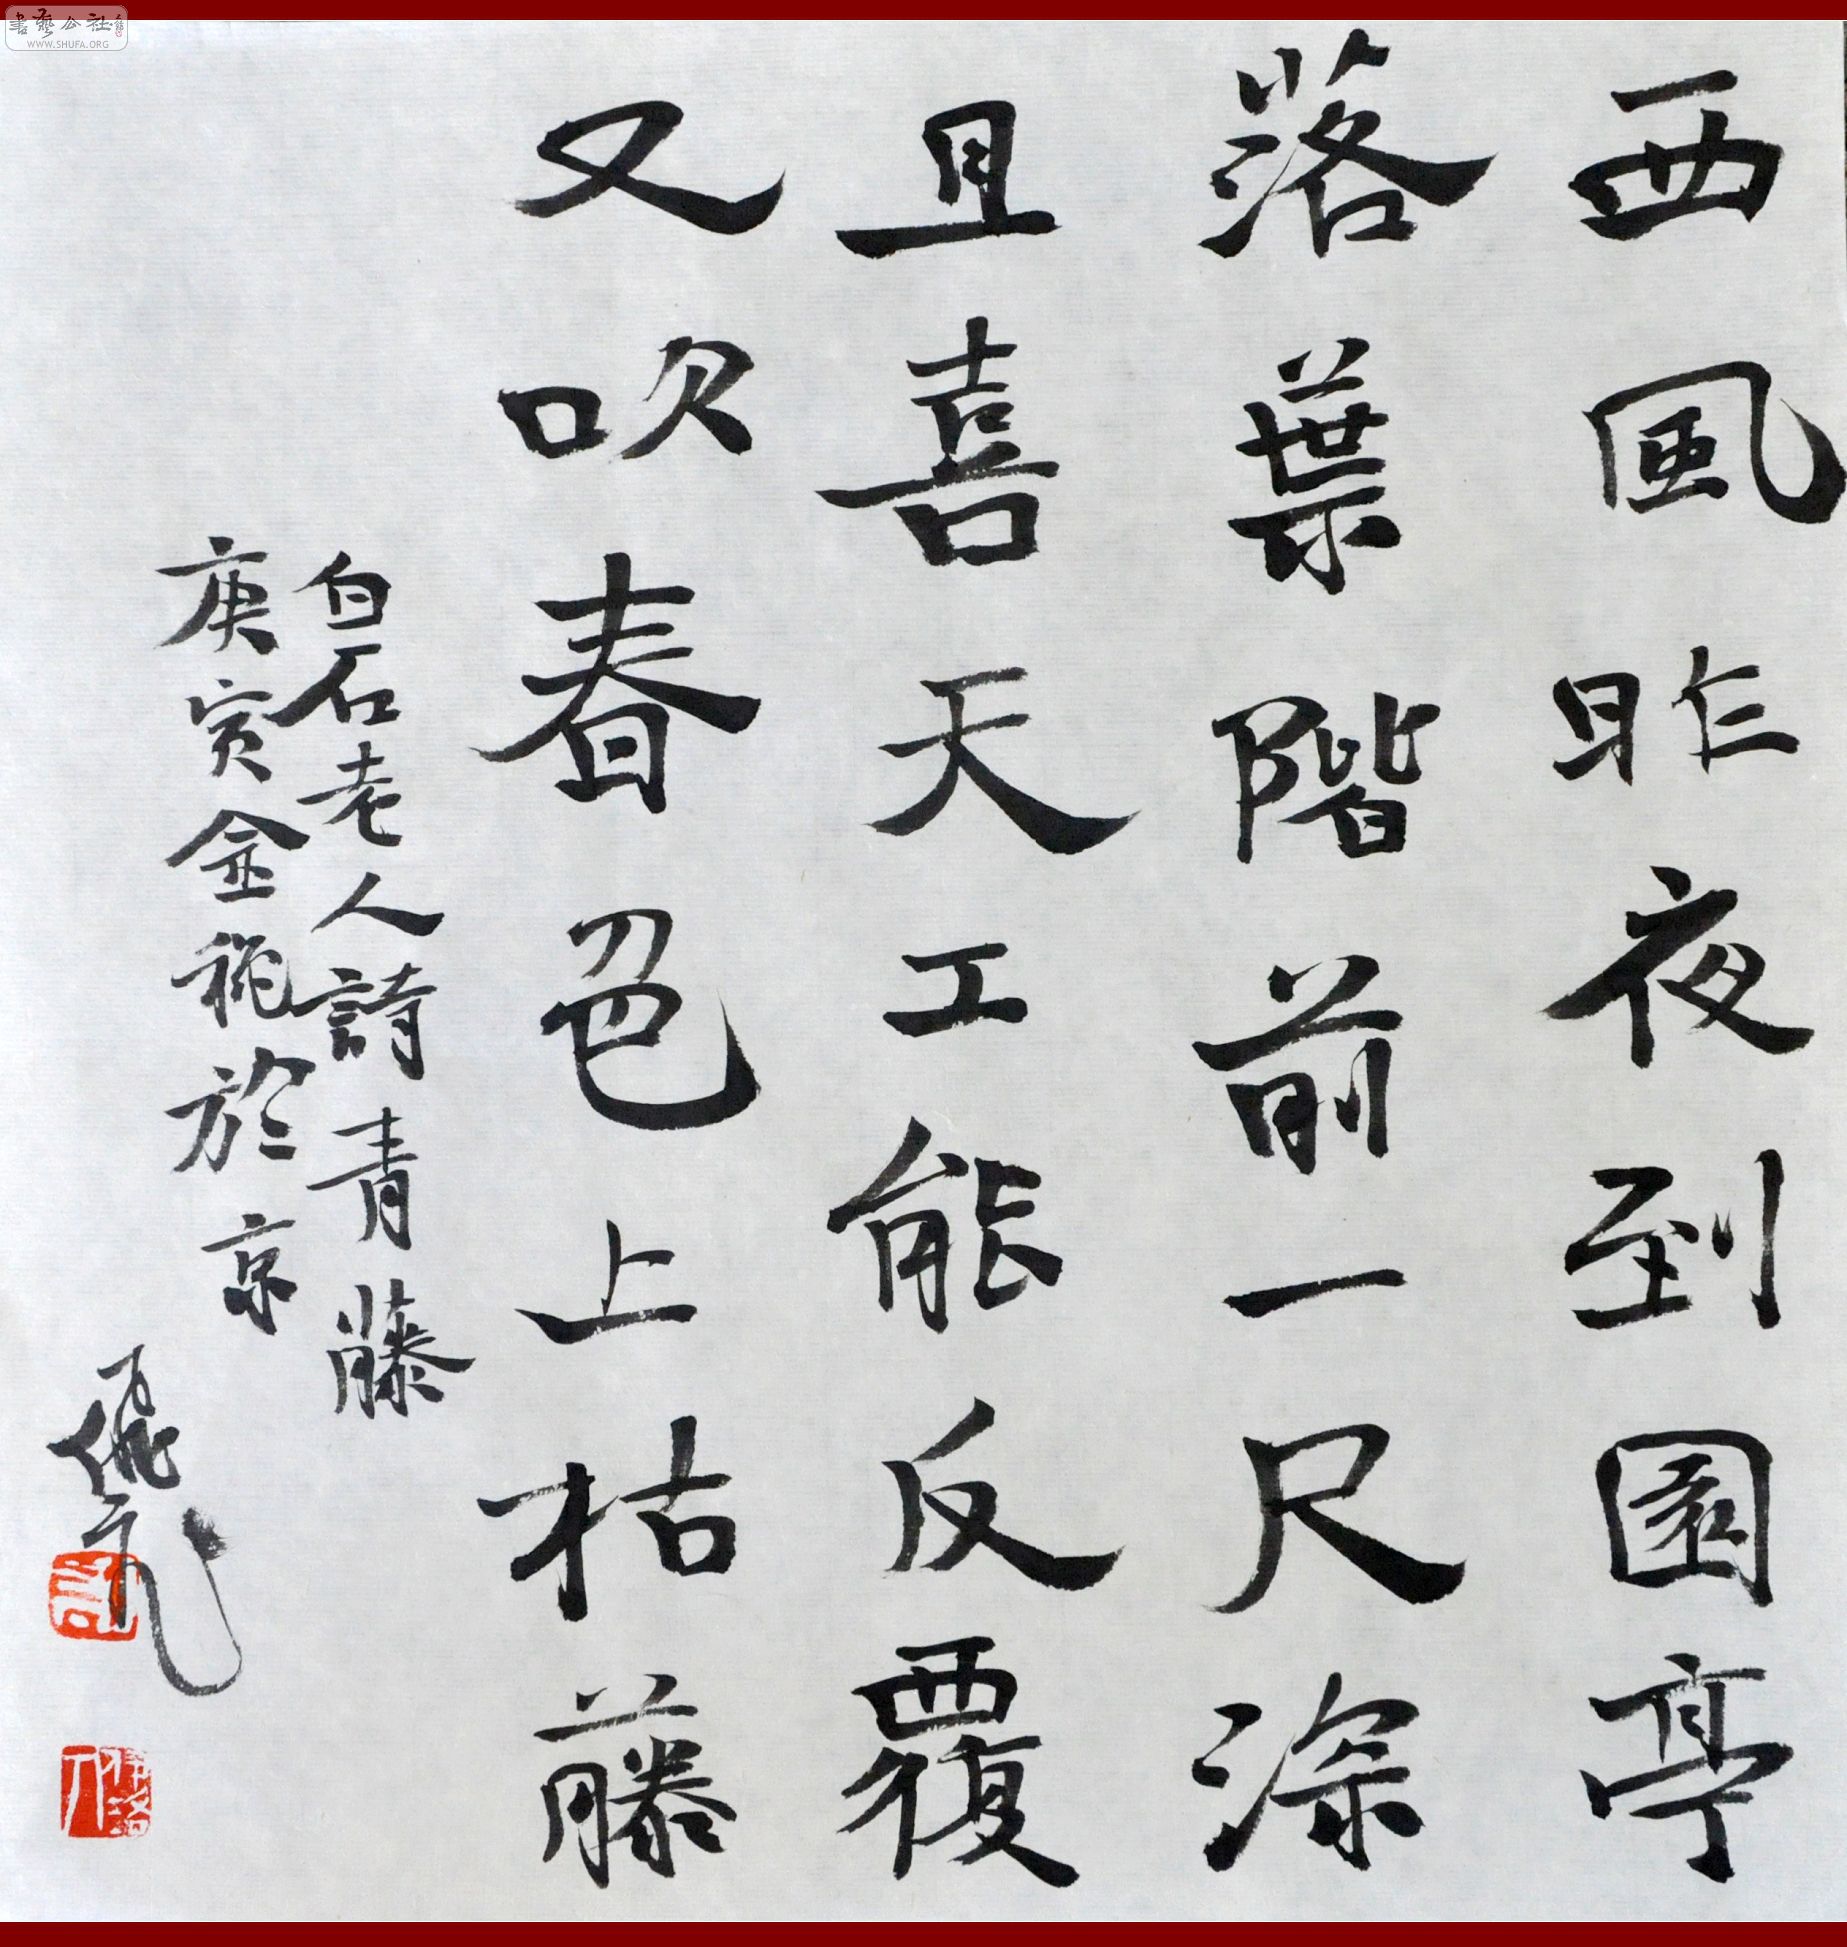 西風昨夜到園亭
落葉階前一尺深
且喜天工能反覆
又吹春色上枯藤
白石老人詩青藤
庚寅金秋於京
書藝公社
WWW.SHUFA.ORG